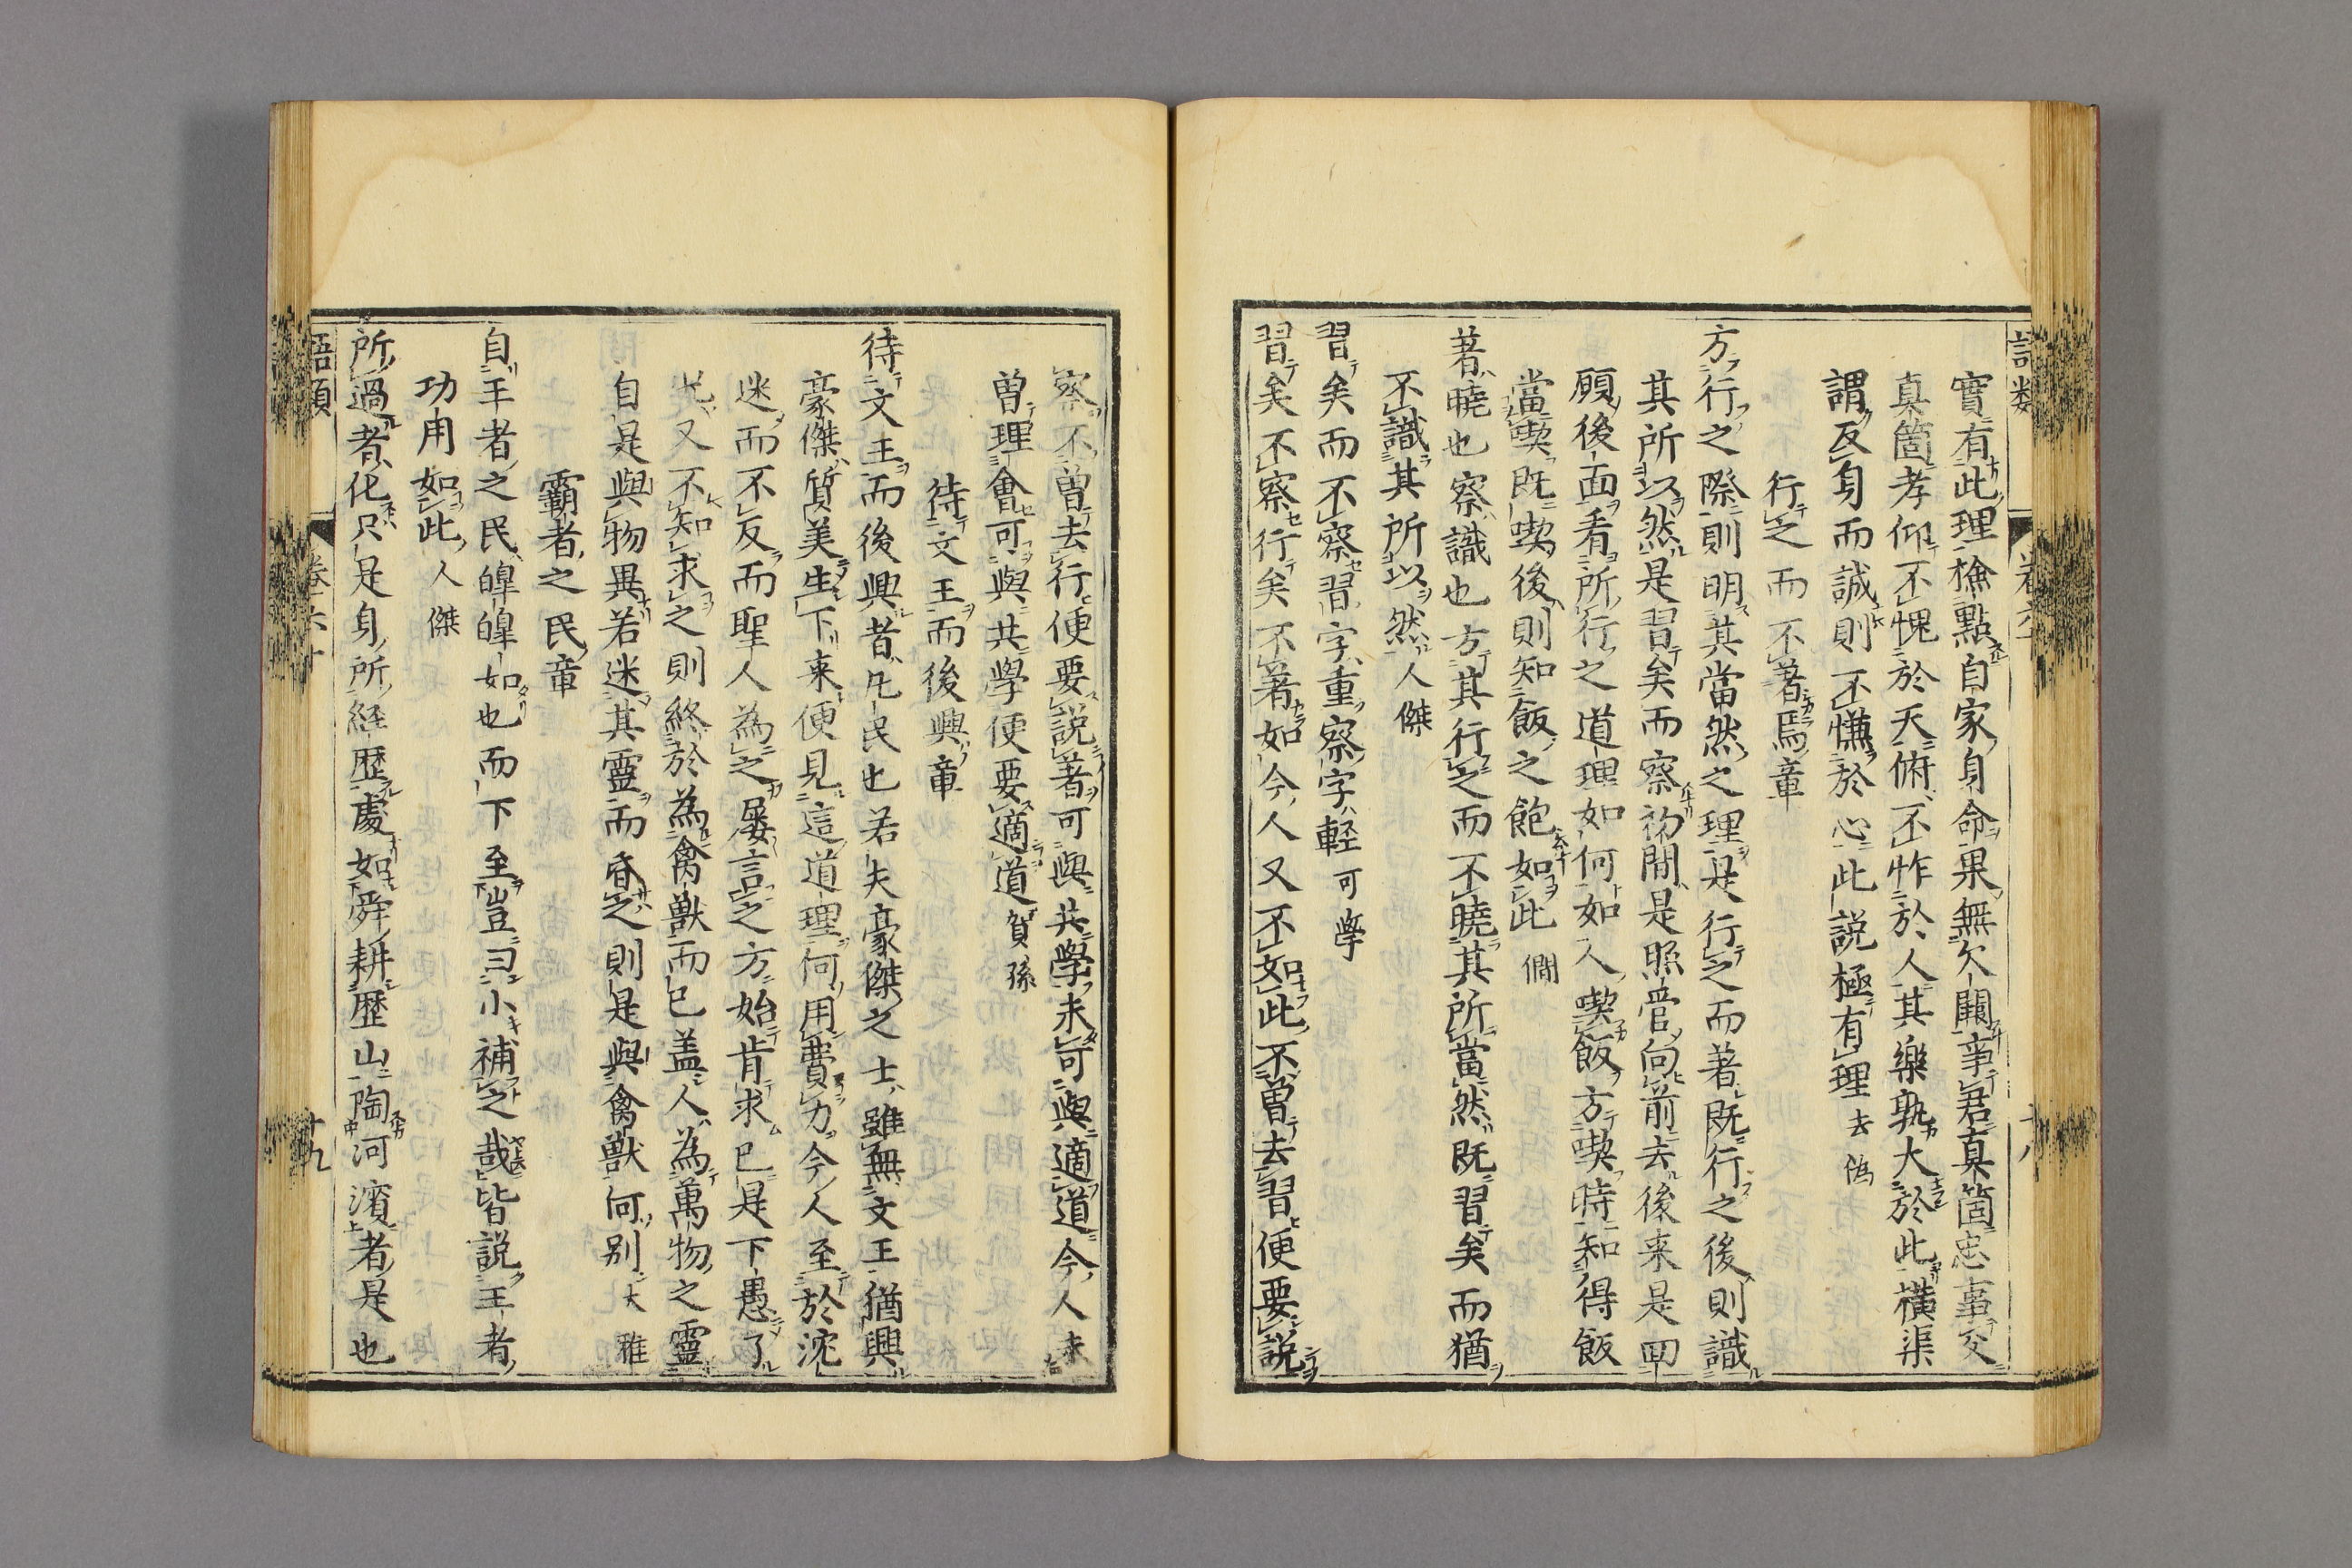 實有此理檢點自家身命果無欠闕事君真箇忠事父
真箇孝仰不愧於天俯不怍於人其樂孰大於此橫渠
謂反身而誠則不慊於心此説極有理去偽
行之而不著焉章
方行之際則明其當然之理是行之而著既行之後則識
其所以然是習矣而察初間是照管向前去後来是囬
顧後面看所行之道理如何如人喫飯方喫時知得飯
當喫既喫後則知飯之飽如此僩
著曉也察識也方其行之而不曉其所當然既習矣而猶
不識其所以然人傑
習矣而不察習字重察字輕可學
習矣不察行矣不著如今人又不如此不曽去習便要説
察不曽去行便要説著可與共學未可與適道今人未
曽理會可與共學便要適道賀孫
待文王而後興章
待文王而後興者凡民也若夫豪傑之士雖無文王猶興
豪傑質美生下来便見這道理何用費力今人至於沈
迷而不反而聖人為之屡言之方始肯求已是下愚了
又不知求之則終於為禽獸而已盖人為萬物之靈
自是與物異若迷其靈而昏之則是與禽獸何别大雅
霸者之民章
自王者之民皥皥如也而下至豈曰小補之哉皆説王者
功用如此人傑
所過者化只是身所經歴處如舜耕歴山陶河濱者是也
語類
卷六十
十九